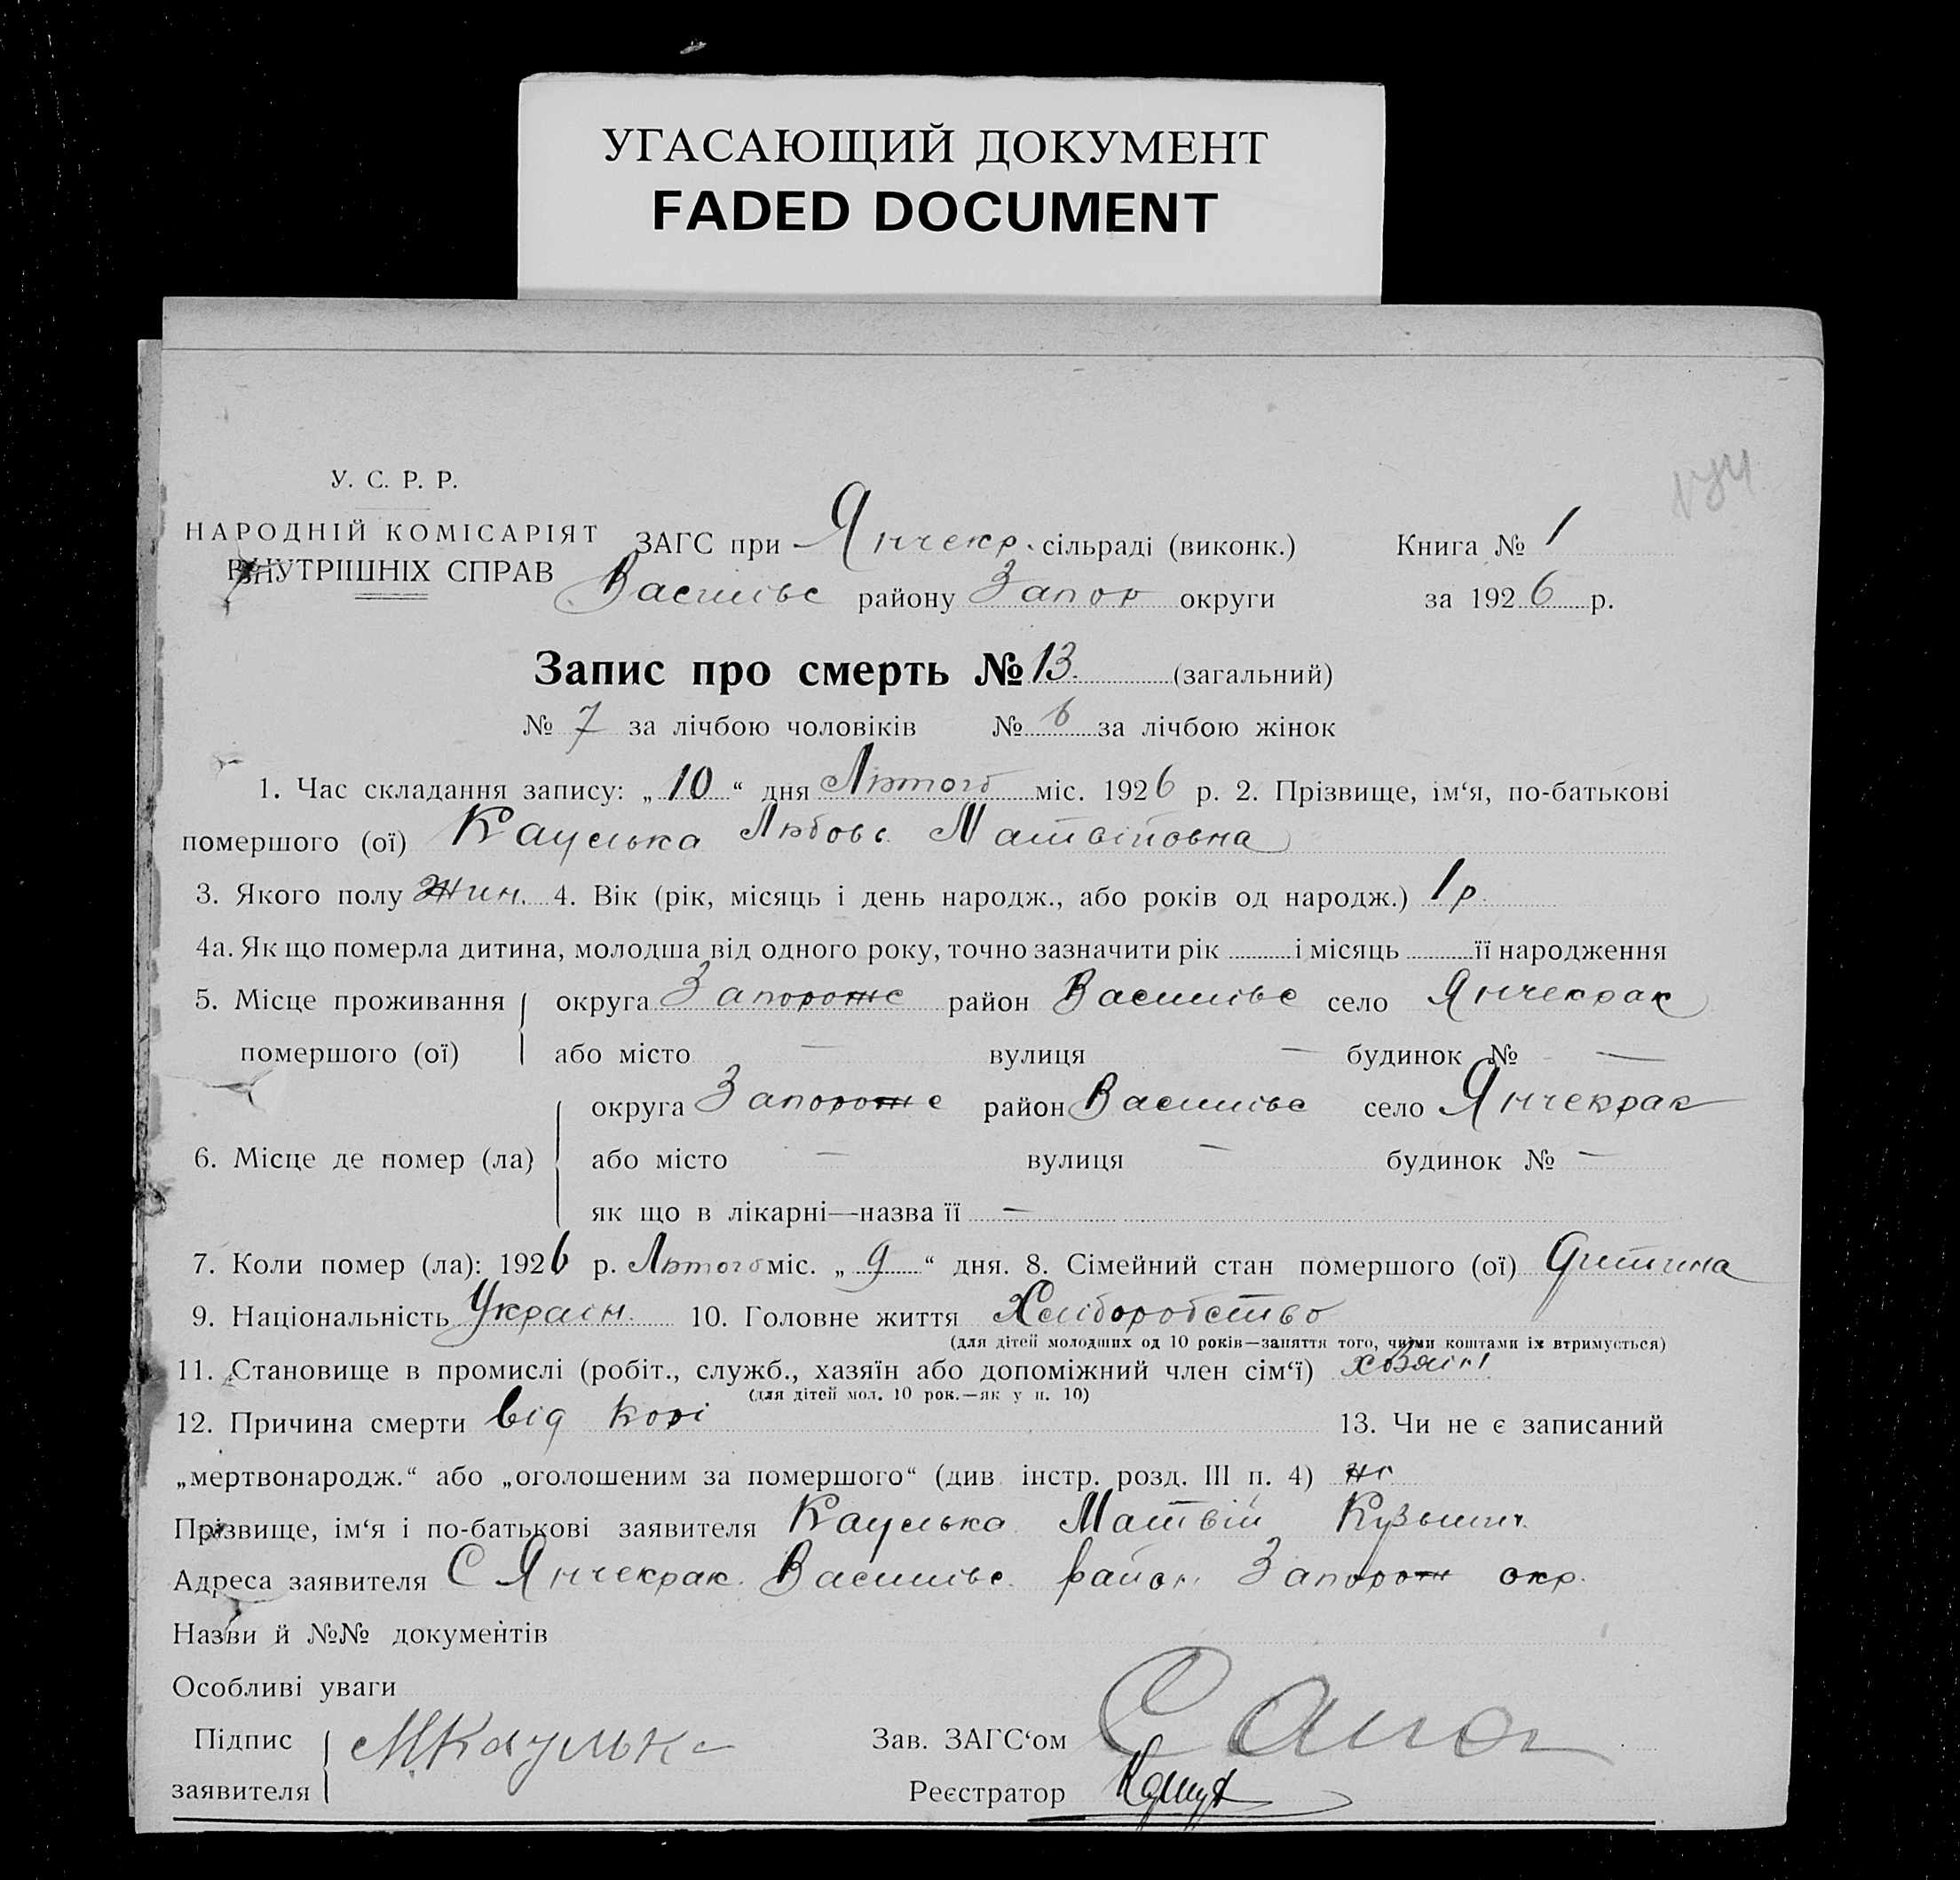 УГАСАЮЩИЙ ДОКУМЕНТ
FADED DOCUMENT
У. С. Р. Р.
НАРОДНІЙ КОМІСАРІЯТ
ВНУТРІШНІХ СПРАВ
ЗАГС при Янчекр. сільраді (виконк.) Книга № 1
Василівс району Запор округи за 1926 р.
Запис про смерть № 13. (загальний)
№ 7 за лічбою чоловіків № 6 за лічбою жінок
1. Час складання запису: „10“ дня Лютого міс. 1926 р. 2. Прізвище, ім‘я, по-батькові
помершого (ої) Кауелька Любовь Матвійовна
3. Якого полу жин. 4. Вік (рік, місяць і день народж., або років од народж.) 1 р.
4а. Як що померла дитина, молодша від одного року, точно зазначити рік і місяць її народження
5. Місце проживання округа Запорожс район Василівс село Янчекрак
помершого (ої) або місто — вулиця — будинок № —
округа Запорожс район Василівс село Янчекрак
6. Місце де помер (ла) або місто — вулиця — будинок № —
як що в лікарні—назва її —
7. Коли помер (ла): 1926 р. Лютого міс. „9“ дня. 8. Сімейний стан помершого (ої) дитина
9. Національність Україн. 10. Головне життя Хліборобство
(для дітей молодших од 10 років—заняття того, чиїми коштами їх втримується)
11. Становище в промислі (робіт., служб., хазяїн або допоміжний член сім‘ї) хозяїн
(для дітей мол. 10 рок.—як у п. 10)
12. Причина смерти від корі 13. Чи не є записаний
„мертвонародж.“ або „оголошеним за помершого“ (див інстр. розд. III п. 4) нє
Прізвище, ім‘я і по-батькові заявителя Кауелька Матвій Кузьмич
Адреса заявителя С Янчекрак. Василівс. район Запорож окр.
Назви й №№ документів
Особливі уваги
Підпис М. Каулька Зав. ЗАГС‘ом
заявителя Реєстратор